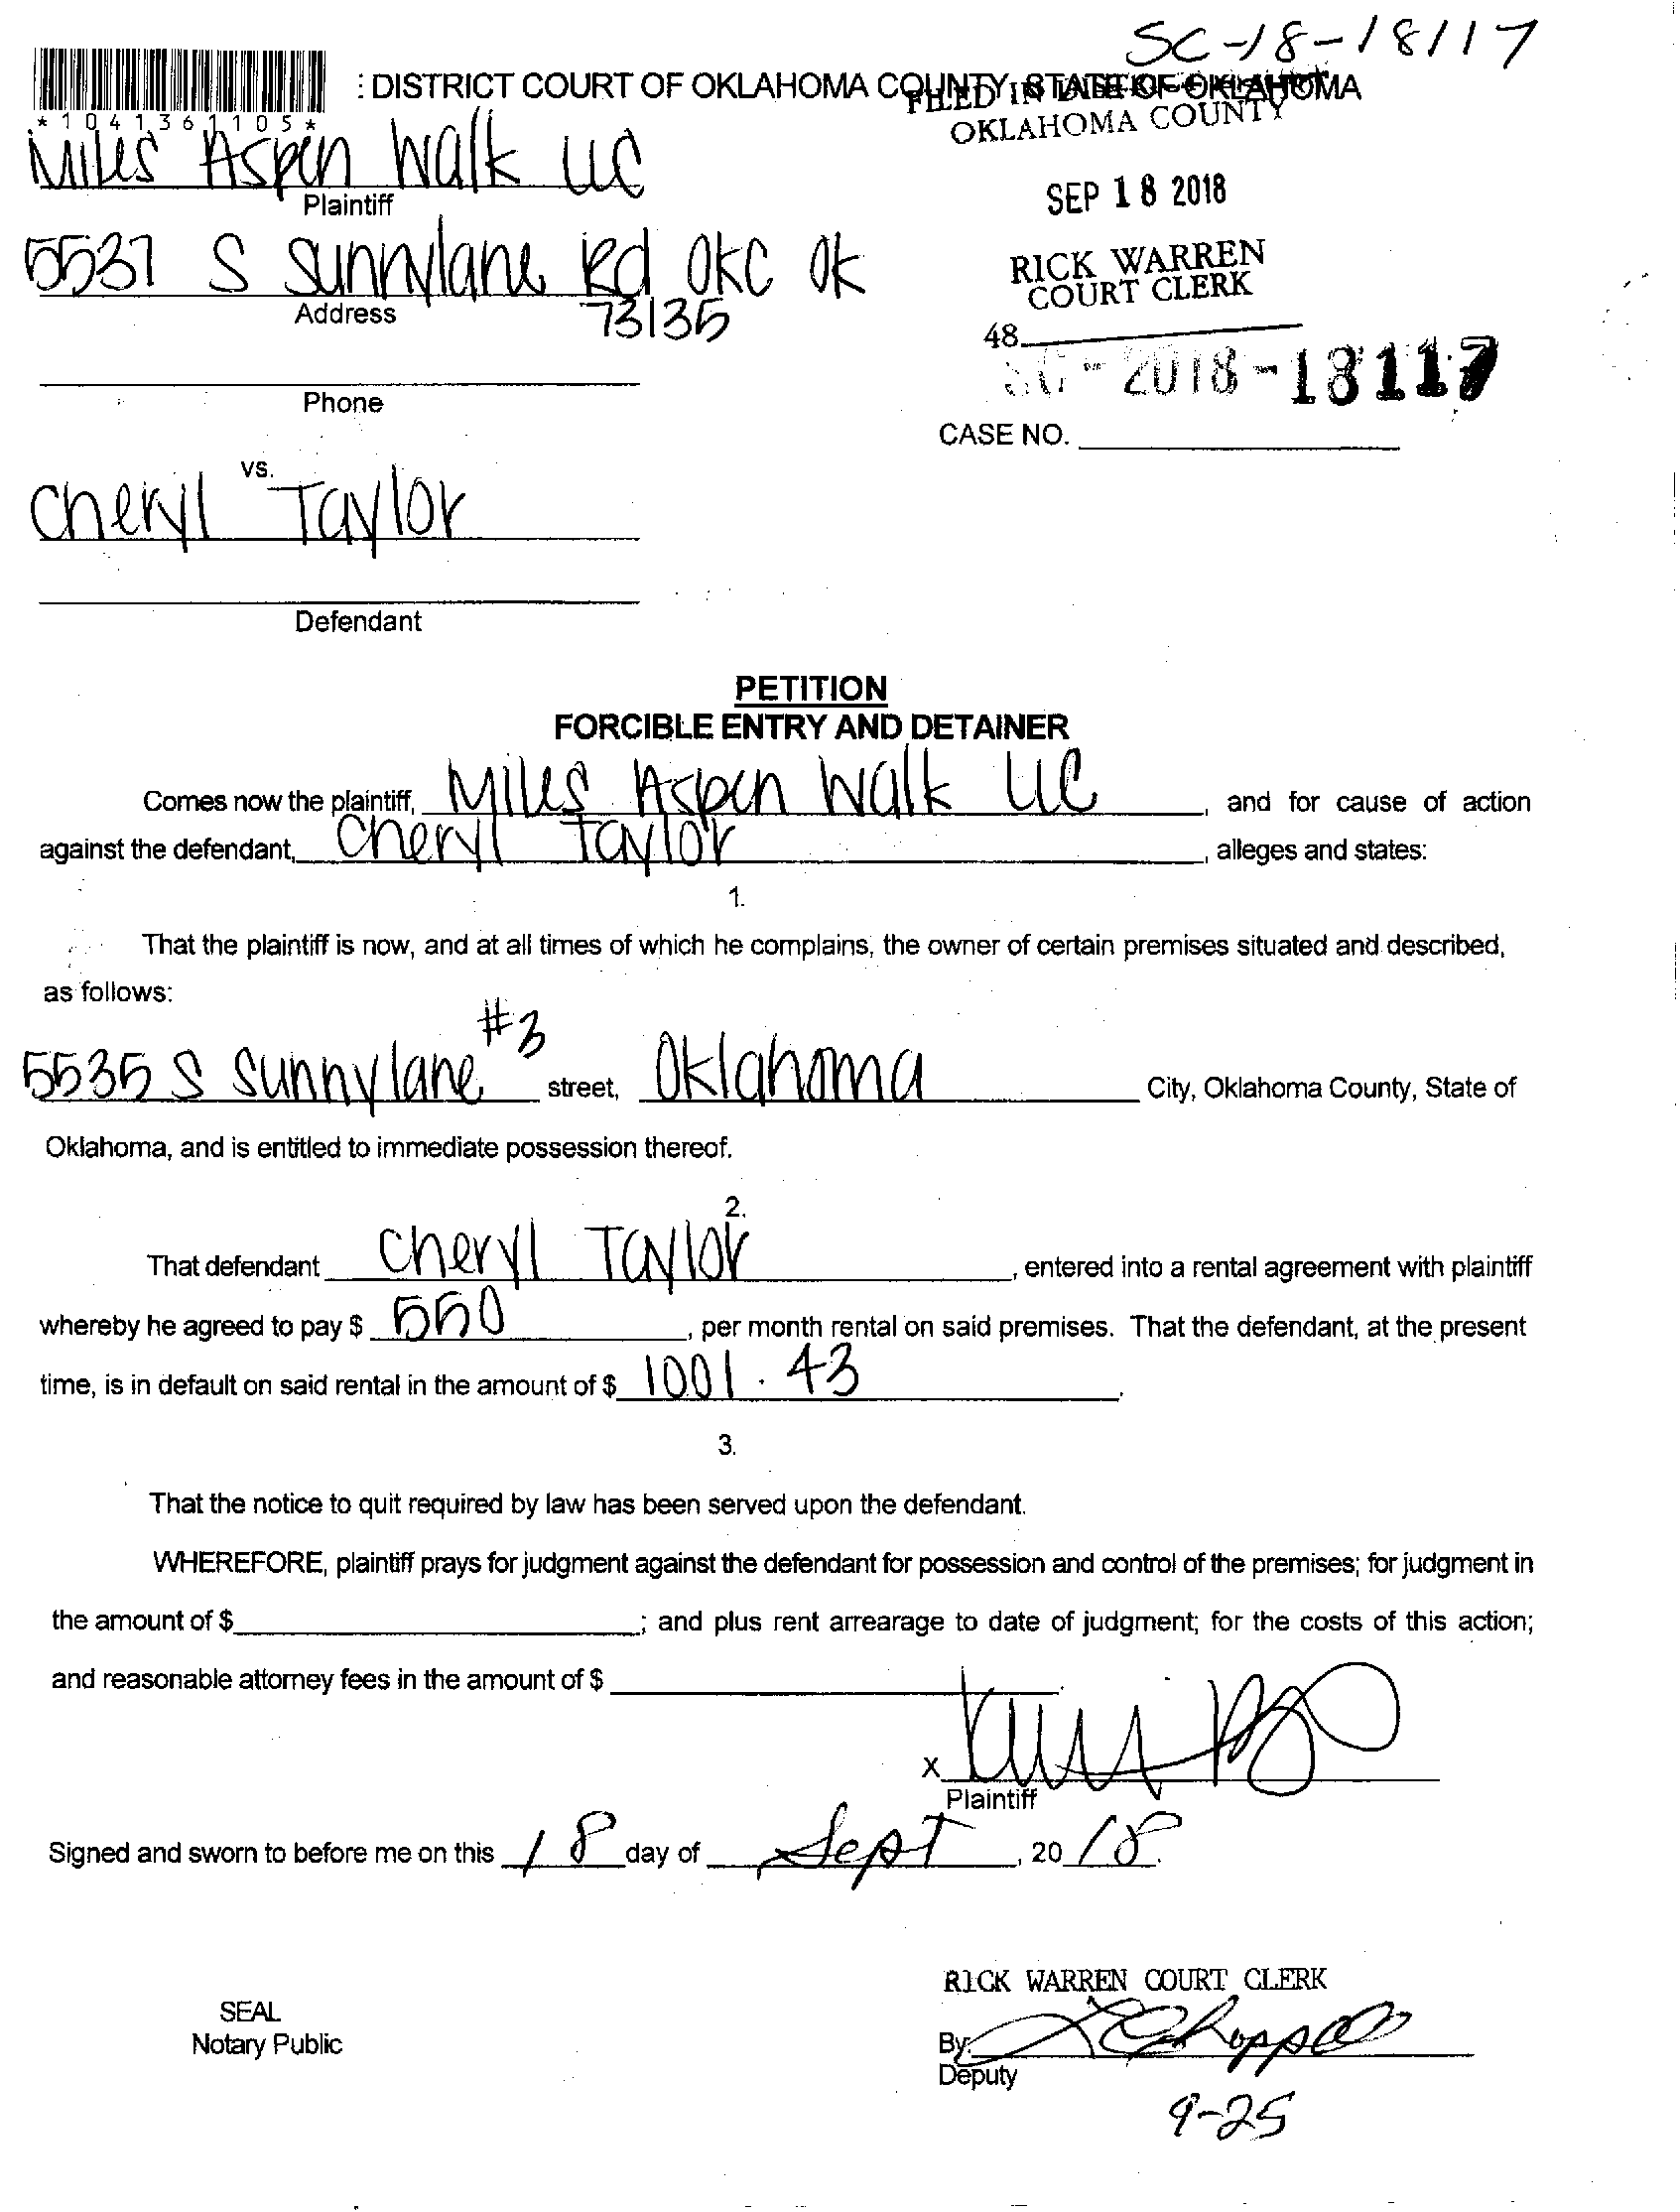 SC-18-18117
: DISTRICT COURT OF OKLAHOMA COUNTY, STATE OF OKLAHOMA
FILED IN
OKLAHOMA COUNTY
*1041361105*
Miles Aspen Walk LLC
Plaintiff
SEP 18 2018
5537 S Sunnylane Rd OKC OK
73135
Address
RICK WARREN
COURT CLERK
48
SC-2018-18117
Phone
CASE NO.
vs.
Cheryl Taylor
Defendant
PETITION
FORCIBLE ENTRY AND DETAINER
Comes now the plaintiff, Miles Aspen Walk LLC, and for cause of action
against the defendant, Cheryl Taylor, alleges and states:
1.
That the plaintiff is now, and at all times of which he complains, the owner of certain premises situated and described,
as follows:
5535 S Sunnylane #3 street, Oklahoma City, Oklahoma County, State of
Oklahoma, and is entitled to immediate possession thereof.
2.
That defendant Cheryl Taylor, entered into a rental agreement with plaintiff
whereby he agreed to pay $ 550, per month rental on said premises. That the defendant, at the present
time, is in default on said rental in the amount of $ 1001.43.
3.
That the notice to quit required by law has been served upon the defendant.
WHEREFORE, plaintiff prays for judgment against the defendant for possession and control of the premises; for judgment in
the amount of $ ; and plus rent arrearage to date of judgment; for the costs of this action;
and reasonable attorney fees in the amount of $ .
X
Plaintiff
Signed and sworn to before me on this 18 day of Sept, 2018.
RICK WARREN COURT CLERK
SEAL
Notary Public
By:
Deputy
9-25